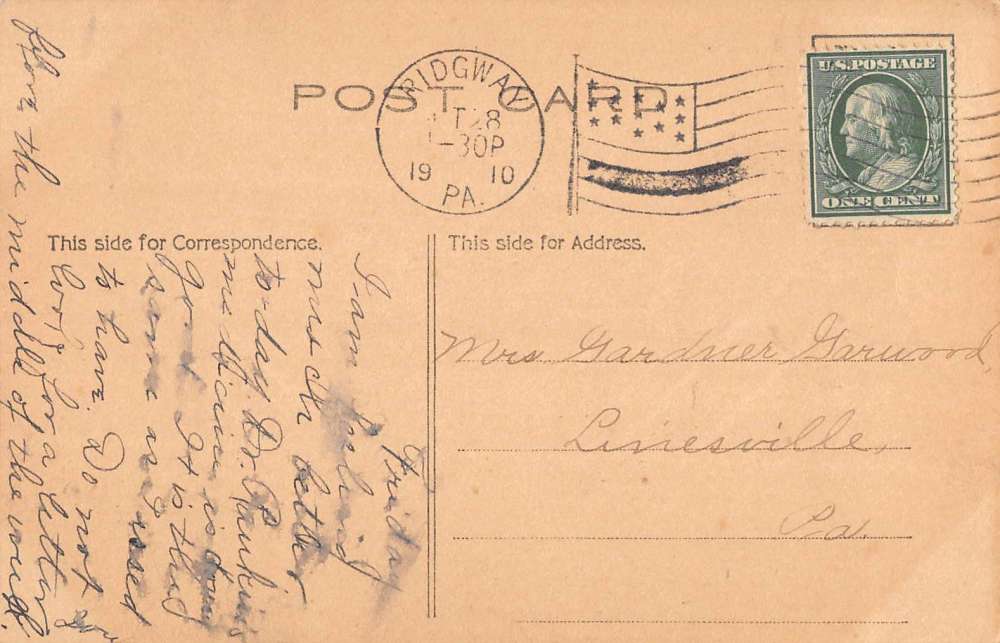 POST CARD
RIDGWAY
OCT 28
1-30P
19 10
PA.
U.S. POSTAGE
ONE CENT
This side for Correspondence.
This side for Address.
Mrs Gardner Garwood,
Linesville,
Pa.
Friday
I am feeling
much better
to-day. Dr. Rankins
medicine is doing
good. It is the
same as I used
to have. Do not you
look for a letter
before the middle of the week.